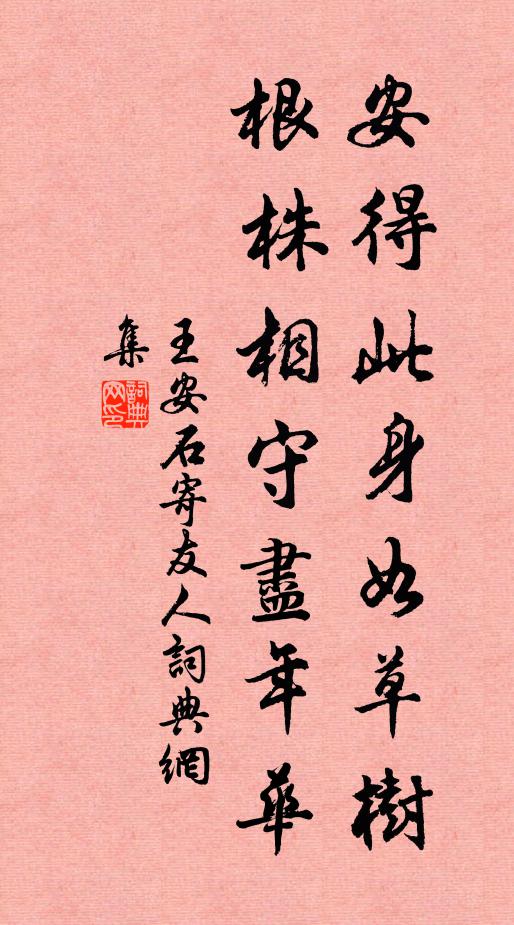 安得此身如草樹
根株相守盡年華
王安石寄友人詞典網
集
詞典
網印